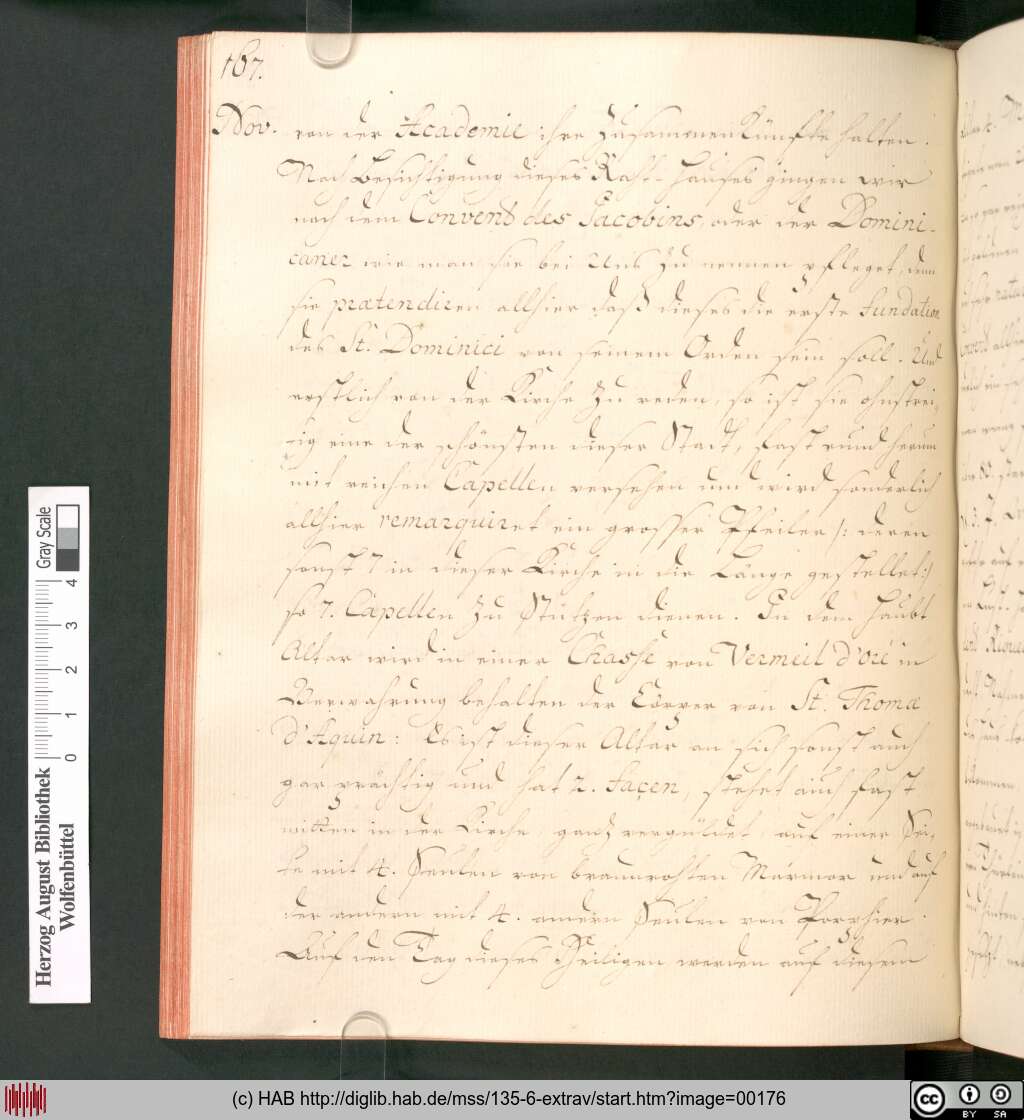 167.
Nov. von der Academie ihre Zusammenkünffte halten.
Nach Besichtigung dieses Raht-Hauses gingen wir
nach dem Convent des Jacobins, oder der Domini-
caner wie man sie bei Uns zu nennen pfleget, denn
sie prætendiren allhier daß dieses die erste Fundation
des St. Dominici von seinem Orden sein soll. Und
erstlich von der Kirche zu reden, so ist sie ohnstrei-
tig eine der schönsten dieser Stadt, fast rund herum
mit reichen Capellen versehen und wird sonderlich
allhier remarquiret ein grosser Pfeiler /: deren
sonst 7 in dieser Kirche in die Länge gestellet :/
so 7. Capellen zu Stützen dienen. In dem Haubt
Altar wird in einer Chasse von Vermeil d'oré in
Verwahrung behalten der Cörper von St. Thomæ
d'Aquin: Es ist dieser Altar an sich sonst auch
gar prächtig und hat 2. façen, stehet auch fast
mitten in der Kirche, ganz vergüldet auf einer Sei-
te mit 4. Seulen von braunrohten Marmor und auf
der andern mit 4. andern Seulen von Porphier.
Auf den Tag dieses Heiligen werden auf diesem
Herzog August Bibliothek
Wolfenbüttel
0 1 2 3 4
Gray Scale
(c) HAB http://diglib.hab.de/mss/135-6-extrav/start.htm?image=00176
cc BY SA